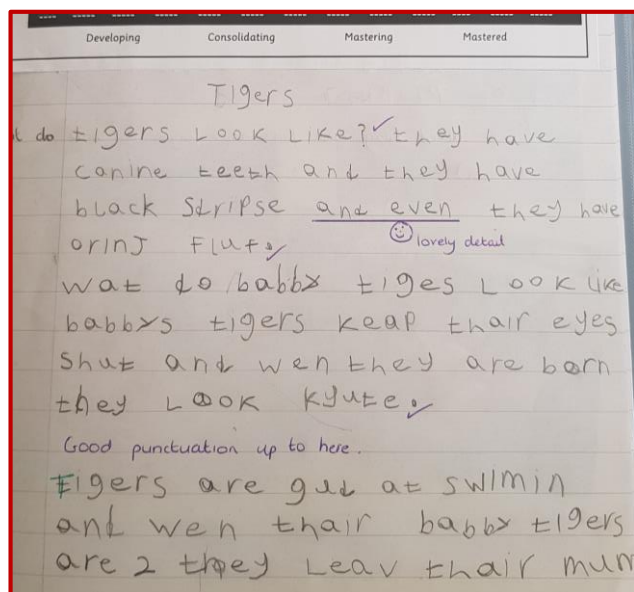 Developing Consolidating Mastering Mastered
TIgers
do tigers Look Like? they have
canine teeth and they have
black Stripse and even they have
orinj Flut.
lovely detail
wat do babby tiges Look like
babbys tigers keap thair eyes
Shut and wen they are born
they Look kyute.
Good punctuation up to here.
Tigers are gud at swimin
and wen thair babby tigers
are 2 they Leav thair mum